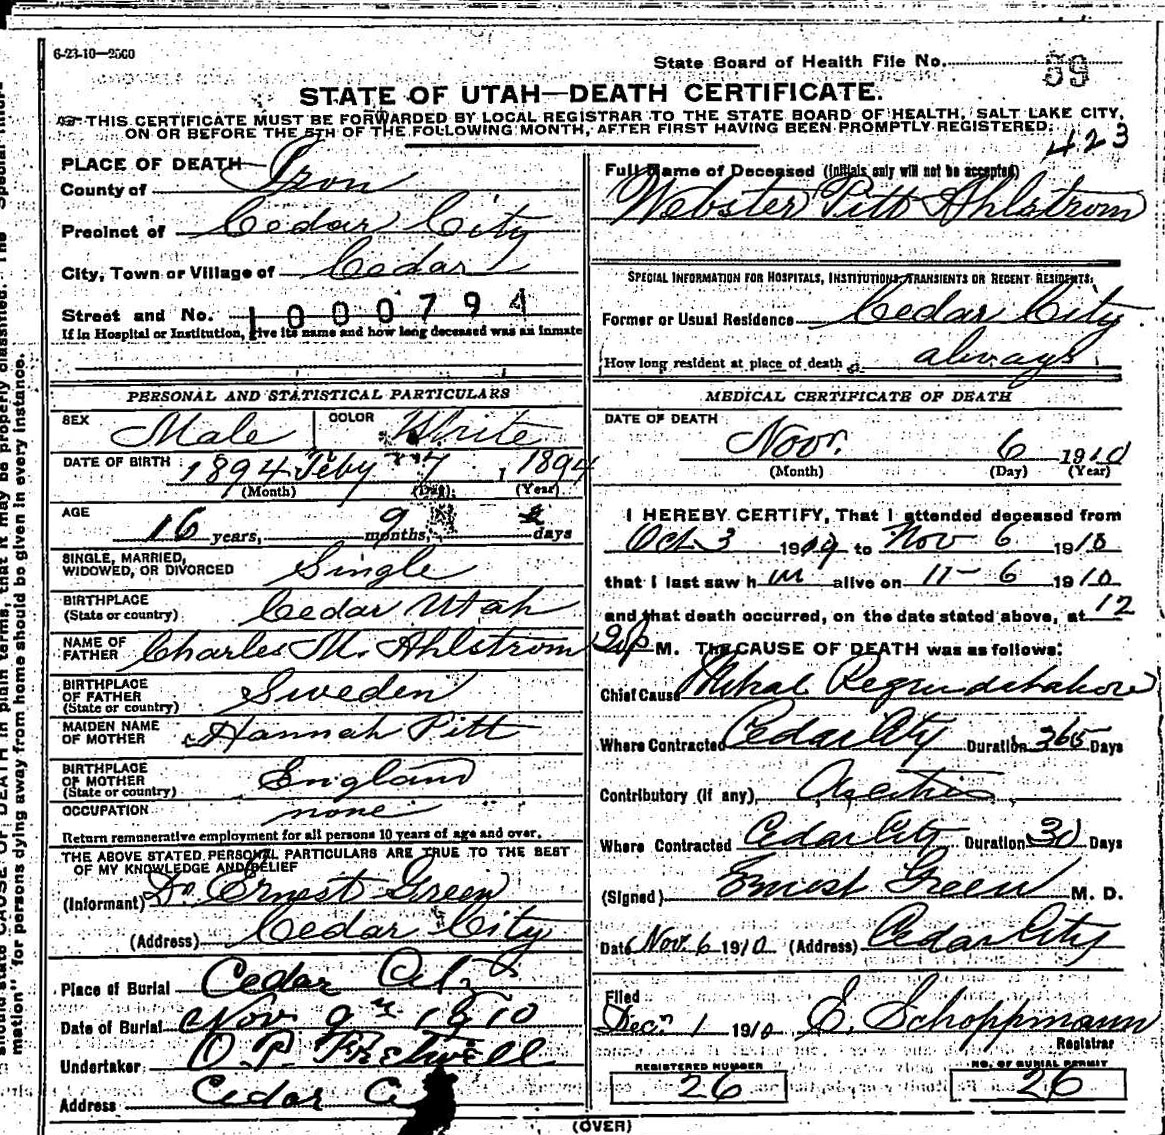 6-23-10—2500
State Board of Health File No. 59
STATE OF UTAH—DEATH CERTIFICATE.
THIS CERTIFICATE MUST BE FORWARDED BY LOCAL REGISTRAR TO THE STATE BOARD OF HEALTH, SALT LAKE CITY,
ON OR BEFORE THE 5TH OF THE FOLLOWING MONTH, AFTER FIRST HAVING BEEN PROMPTLY REGISTERED.
423
PLACE OF DEATH—
County of Iron
Precinct of Cedar City
City, Town or Village of Cedar
Street and No. 1000794
If in Hospital or Institution, give its name and how long deceased was an inmate
Full Name of Deceased (initials only will not be accepted)
Webster Pitt Ahlstrom
SPECIAL INFORMATION FOR HOSPITALS, INSTITUTIONS, TRANSIENTS OR RECENT RESIDENTS:
Former or Usual Residence Cedar City
How long resident at place of death always
PERSONAL AND STATISTICAL PARTICULARS
SEX Male COLOR White
DATE OF BIRTH 1894 Feby 7, 1894
(Month) (Day) (Year)
AGE
16 years, 9 months, days
SINGLE, MARRIED,
WIDOWED, OR DIVORCED Single
BIRTHPLACE
(State or country) Cedar Utah
NAME OF
FATHER Charles M. Ahlstrom
BIRTHPLACE
OF FATHER
(State or country) Sweden
MAIDEN NAME
OF MOTHER Hannah Pitt
BIRTHPLACE
OF MOTHER
(State or country) England
OCCUPATION none
Return remunerative employment for all persons 10 years of age and over.
THE ABOVE STATED PERSONAL PARTICULARS ARE TRUE TO THE BEST
OF MY KNOWLEDGE AND BELIEF
(Informant) Dr. Ernest Green
(Address) Cedar City
Place of Burial Cedar City
Date of Burial Nov 9th 1910
Undertaker O. P. Fretwell
Address Cedar C
MEDICAL CERTIFICATE OF DEATH
DATE OF DEATH
Nov. 6 1910
(Month) (Day) (Year)
I HEREBY CERTIFY, That I attended deceased from
Oct 3 1909 to Nov 6 1910
that I last saw him alive on 11-6 1910
and that death occurred, on the date stated above, at 12
20 p M. The CAUSE OF DEATH was as follows:
Chief Cause Mitral
Where Contracted Cedar City Duration 365 Days
Contributory (if any)
Where Contracted Cedar City Duration 30 Days
(Signed) Ernest Green M. D.
Date Nov. 6 1910 (Address) Cedar City
Filed
Dec. 1 1910 E. Schoppmann
Registrar
REGISTERED NUMBER
26
NO. OF BURIAL PERMIT
26
(OVER)
mation" for persons dying away from home should be given in every instance.